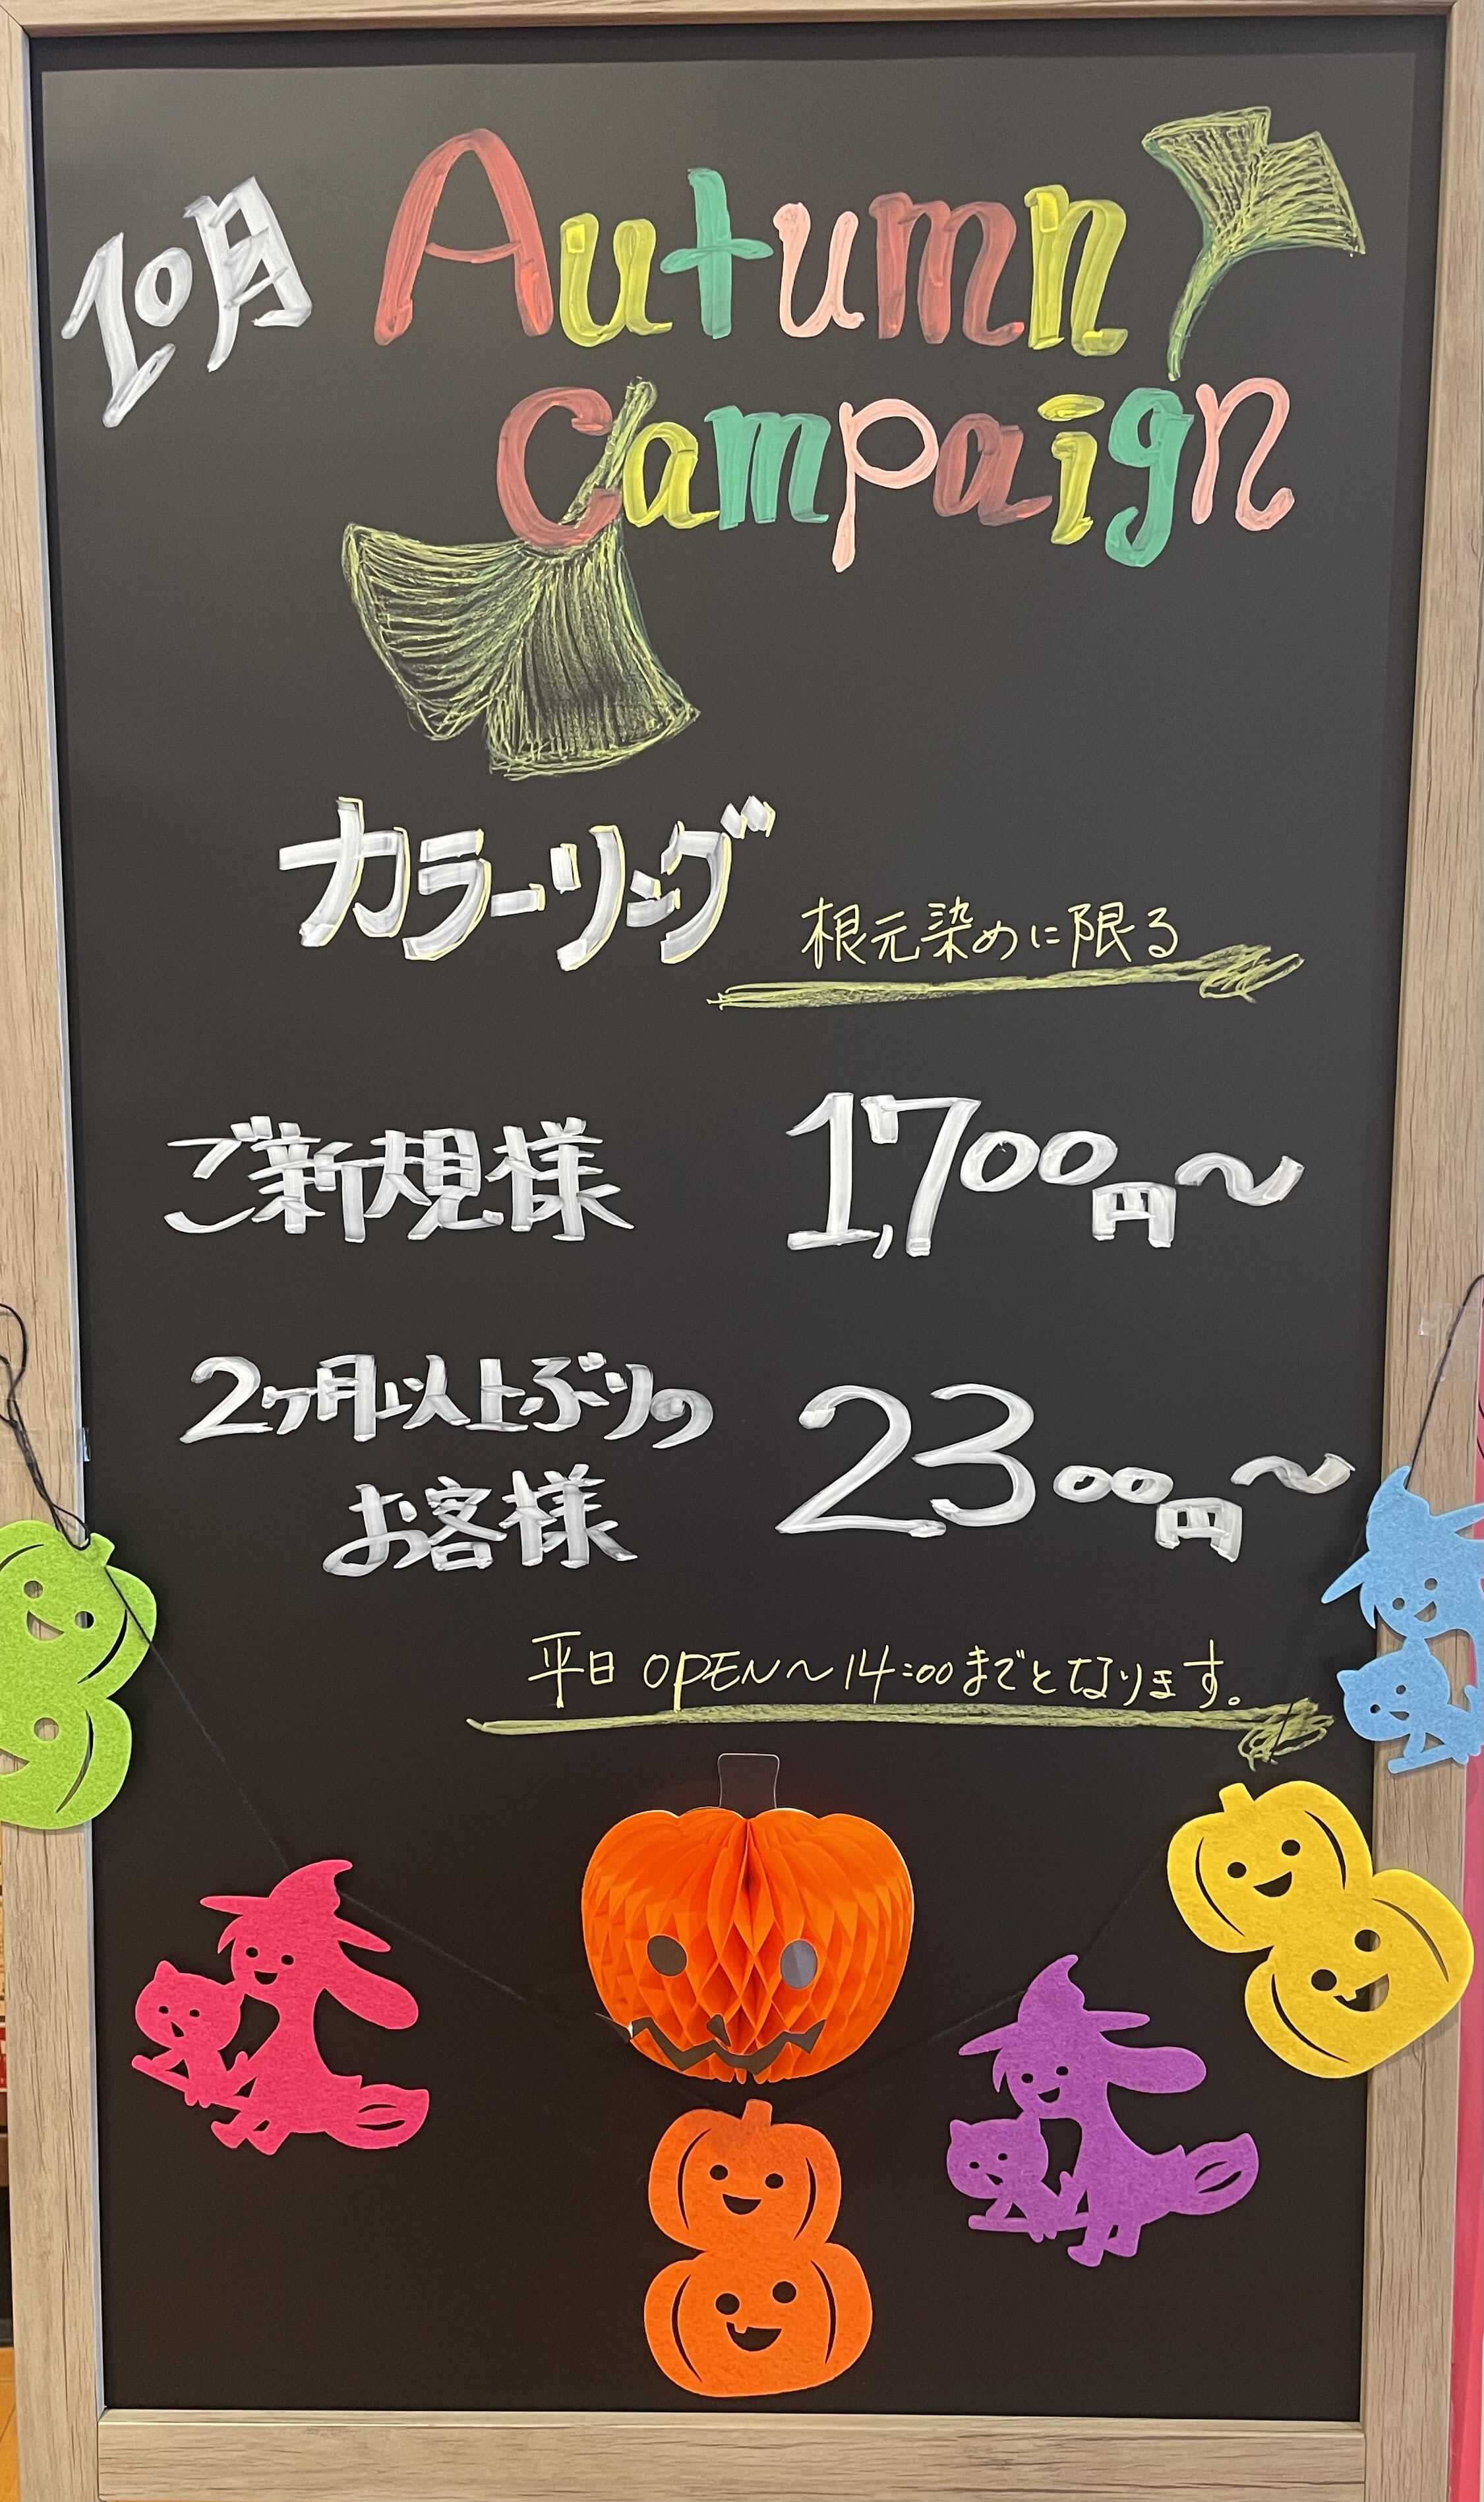 10月 Autumn
Campaign
カラーリング 根元染めに限る
ご新規様 1,700円～
2ヶ月以上ぶりの
お客様 2300円～
平日 OPEN～14:00までとなります。